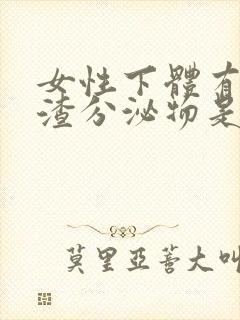 女性下體有
渣分泌物是
莫里亞蒼大叫